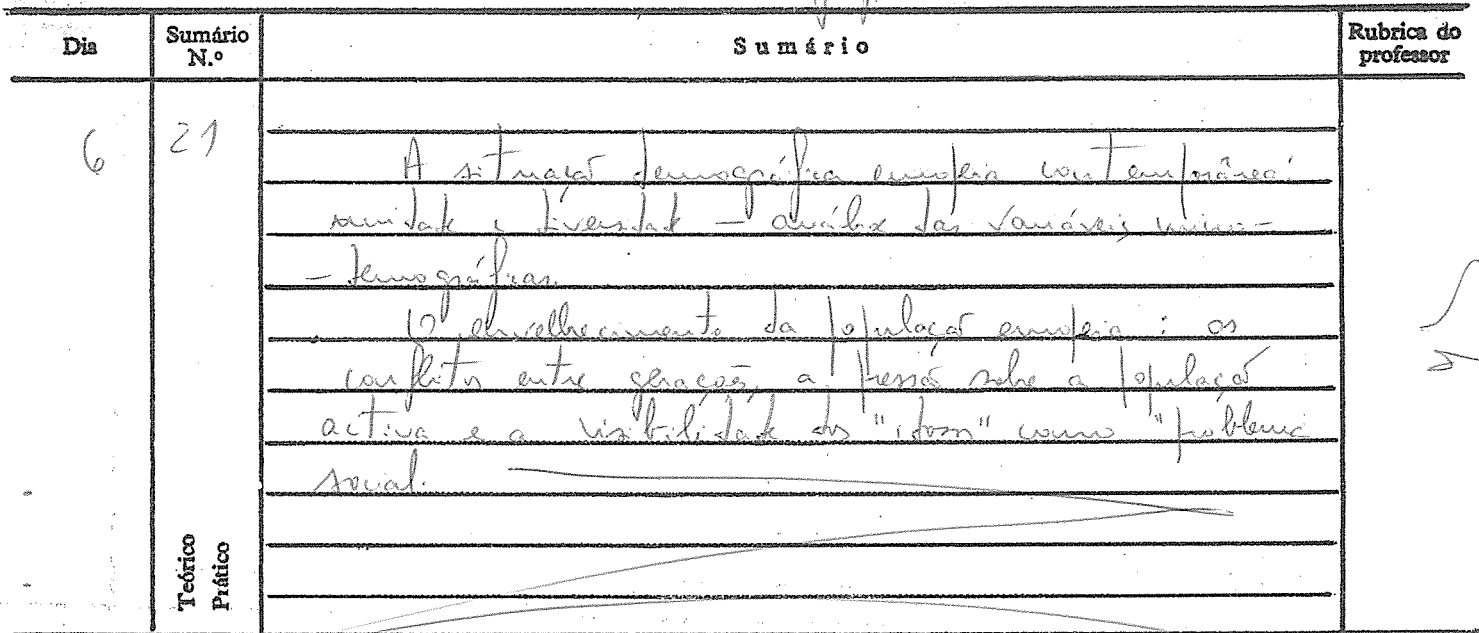 Dia Sumário N.º Sumário Rubrica do professor
6 21
A situação demográfica europeia contemporânea:
unidade e diversidade — análise das variáveis micro-
- demográficas.
O envelhecimento da população europeia: os
conflitos entre gerações, a pressão sobre a população
activa e a visibilidade dos "idosos" como "problema
social.
Teórico
Prático